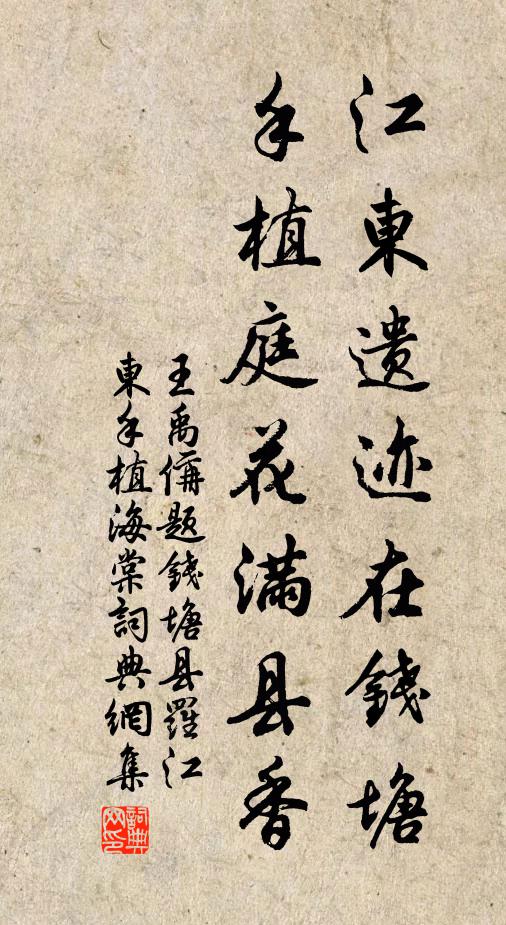 江東遺迹在錢塘
手植庭花满县香
王禹偁題錢塘县羅江
東手植海棠詞典網集
詞典
网印